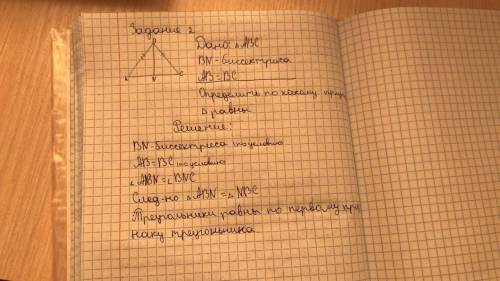 Задание 2
B
A N C
Дано: △ABC
BN-биссектриса
AB=BC
Определить по какому приз
△ равны
Решение:
BN-биссектриса по условию
AB=BC по условию
∠ABN=∠BNC
След-но △ABN=△NBC
Треугольники равны по первому при
знаку треугольника